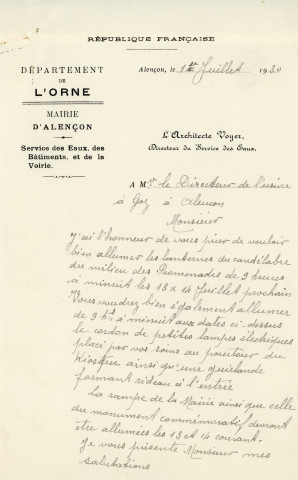 RÉPUBLIQUE FRANÇAISE
DÉPARTEMENT
DE
L'ORNE
MAIRIE
D'ALENÇON
Service des Eaux, des
Bâtiments, et de la
Voirie.
Alençon, le 1er Juillet 1930
L'Architecte Voyer,
Directeur du Service des Eaux.
A Mr le Directeur de l'usine
à Gaz à Alençon
Monsieur
J'ai l'honneur de vous prier de vouloir
bien allumer les lanternes du candélabre
du milieu des Promenades de 9 heures
à minuit les 13 & 14 Juillet prochain
Vous voudrez bien également allumer
de 9 hs à minuit aux dates ci-dessus
le cordon de petites lampes électriques
placé par vos soins au pourtour du
Kiosque ainsi qu'une guirlande
formant rideau à l'entrée
La rampe de la Mairie ainsi que celle
du monument commémoratif devront
être allumées les 13 et 14 courant.
Je vous présente Monsieur mes
salutations